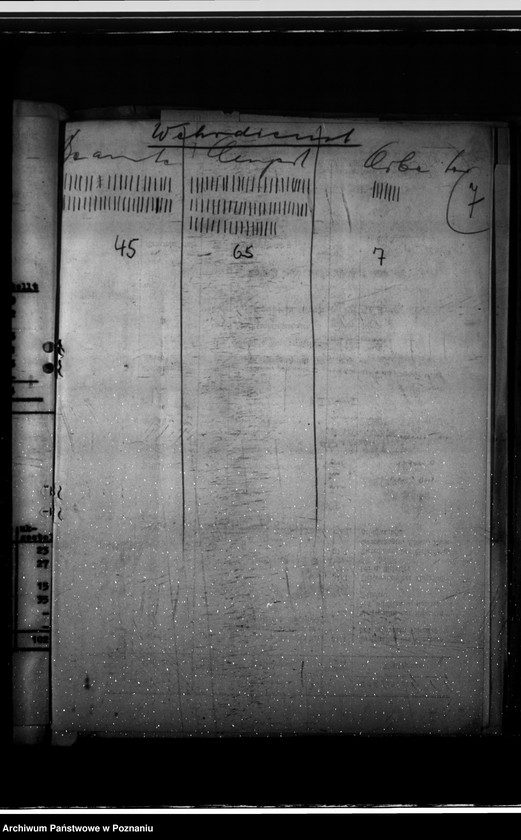 Wehrdienst
Beamte Angest Arbeiter
7
45 65 7
23
27
15
35
Archiwum Państwowe w Poznaniu